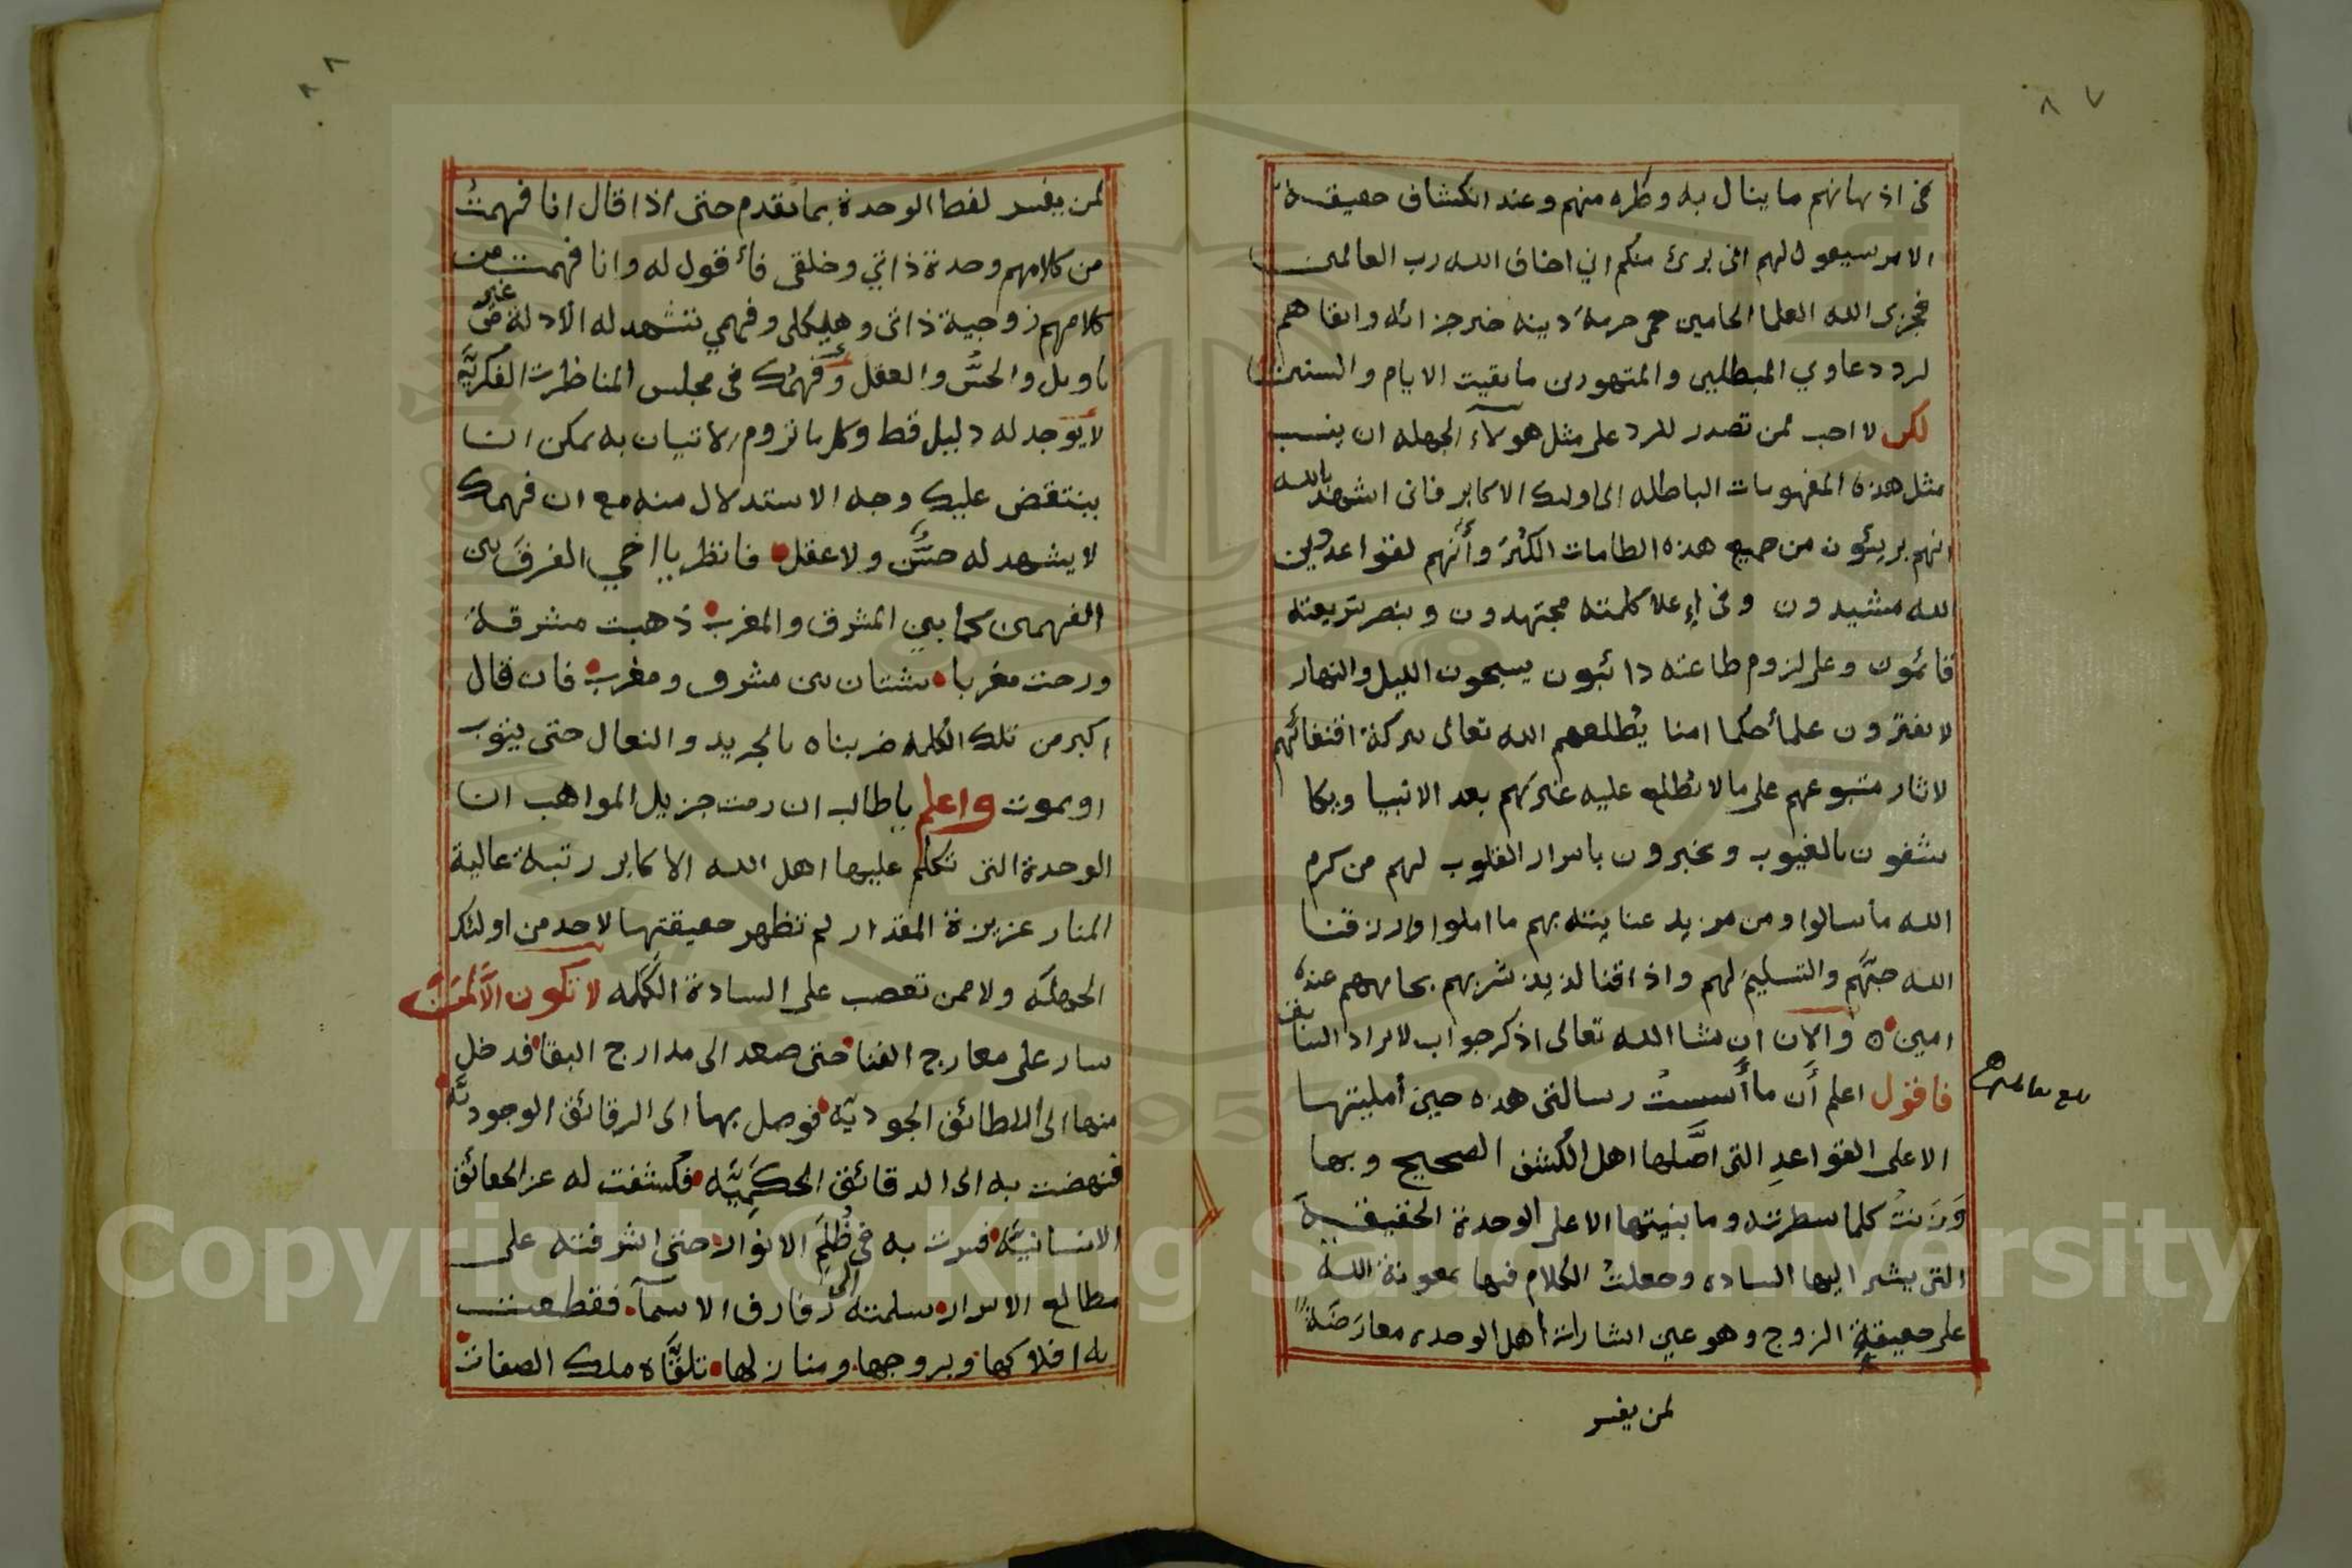 ٨٧
في اذهانهم ما ينال به وطره منهم وعند انكشاف حقيقة
الامر سيقول لهم اني برئ منكم اني اخاف الله رب العالمين
فجزى الله العلما الحامين حمى حرمة دينه خير جزائه وابقاهم
لرد دعاوي المبطلين والمتهورين ما بقيت الايام والسنين
لكن لا احب لمن تصدر للرد على مثل هولاء الجهله ان ينسب
مثل هذه المفهومات الباطله الى اولئك الاكابر فاني اشهد بالله
انهم بريئون من جميع هذه الطامات الكُبَرَ وأنهم لقواعد دين
الله مشيدون وفي إعلا كلمته مجتهدون وبنصر شريعته
قائمون وعلى لزوم طاعته دائبون يسبحون الليل والنهار
لا يفترون علمأ حكما امنا يُطلعهم الله تعالى ببركة اقتفائهم
لاثار متبوعهم على ما لا يُطلع عليه غيرهم بعد الانبيا ويكا
شفون بالغيوب ويخبرون باسرار القلوب لهم من كرم
الله ما سالوا ومن مزيد عنايته بهم ما املوا ورزقنا
الله حبَّهم والتسليم لهم واذاقنا لذيذ شربهم بجاههم عنده
امين ٥ والان ان شا الله تعالى اذكر جواب لايراد السابق
فاقول اعلم أن ما أسستُ رسالتي هذه حين أمليتها
الا على القواعدِ التي اصَّلها اهل الكشف الصحيح وبها
وَزَنتُ كلما سطرته وما بنيتها الا على الوحدة الحقيقية
التي يشير اليها الساده وجعلتُ الكلام فيها بمعونة الله
على حقيقةِ الزوج وهو عين اشارات اهل الوحده معارضَةً
لمن يفسر
٨٨
لمن يفسر لفظ الوحدة بما تقدم حتى اذا قال انا فهمتُ
من كلامهم وحدة ذاتي وخلقي فأقول له وانا فهمت من
كلامهم زوجية ذاتي وهيكلي وفهمي تشهد له الأدلة من غير
تاويل والحسُّ والعقل وفهمُك في مجلس المناظرت الفكريَّة
لا يوجد له دليل قط وكل ما تروم الاتيان به يمكن ان
ينتقض عليك وجه الاستدلال منه مع ان فهمك
لا يشهد له حسٌّ ولا عقل فانظر يا اخي الفرقَ بين
الفهمين كما بين المشرق والمغرب ذهبت مشرقة
ورحت مغربا شتان بين مشرق ومغرب فان قال
اكبر من تلك الكلمة ضربناه بالجريد والنعال حتى يتوب
او يموت واعلم يا طالب ان رمت جزيل المواهب ان
الوحدة التي تكلم عليها اهل الله الاكابر رتبة عالية
المنار عزيزة المقدار لم تظهر حقيقتها لاحد من اولئك
الجهلَه ولا ممن تعصب على السادة الكَمَله لا تكون الَّا لمن
سار على معارج الفنا حتى صعد الى مدارج البقا فدخل
منها الى اللطائف الجوديّة فوصل بها الى الرقائق الوجوديَّة
فنهضت به الى الدقائق الحكَمِيَّه فكشفت له عن الحقائق
الانسانيَّة فسرت به في ظُلَمِ الانوار حتى اشرفته على
مطالع الاسرار سلمته الى رفارف الاسمآ فقطعت
به افلاكها وبروجها ومنازلها تلقَّاه ملك الصفات